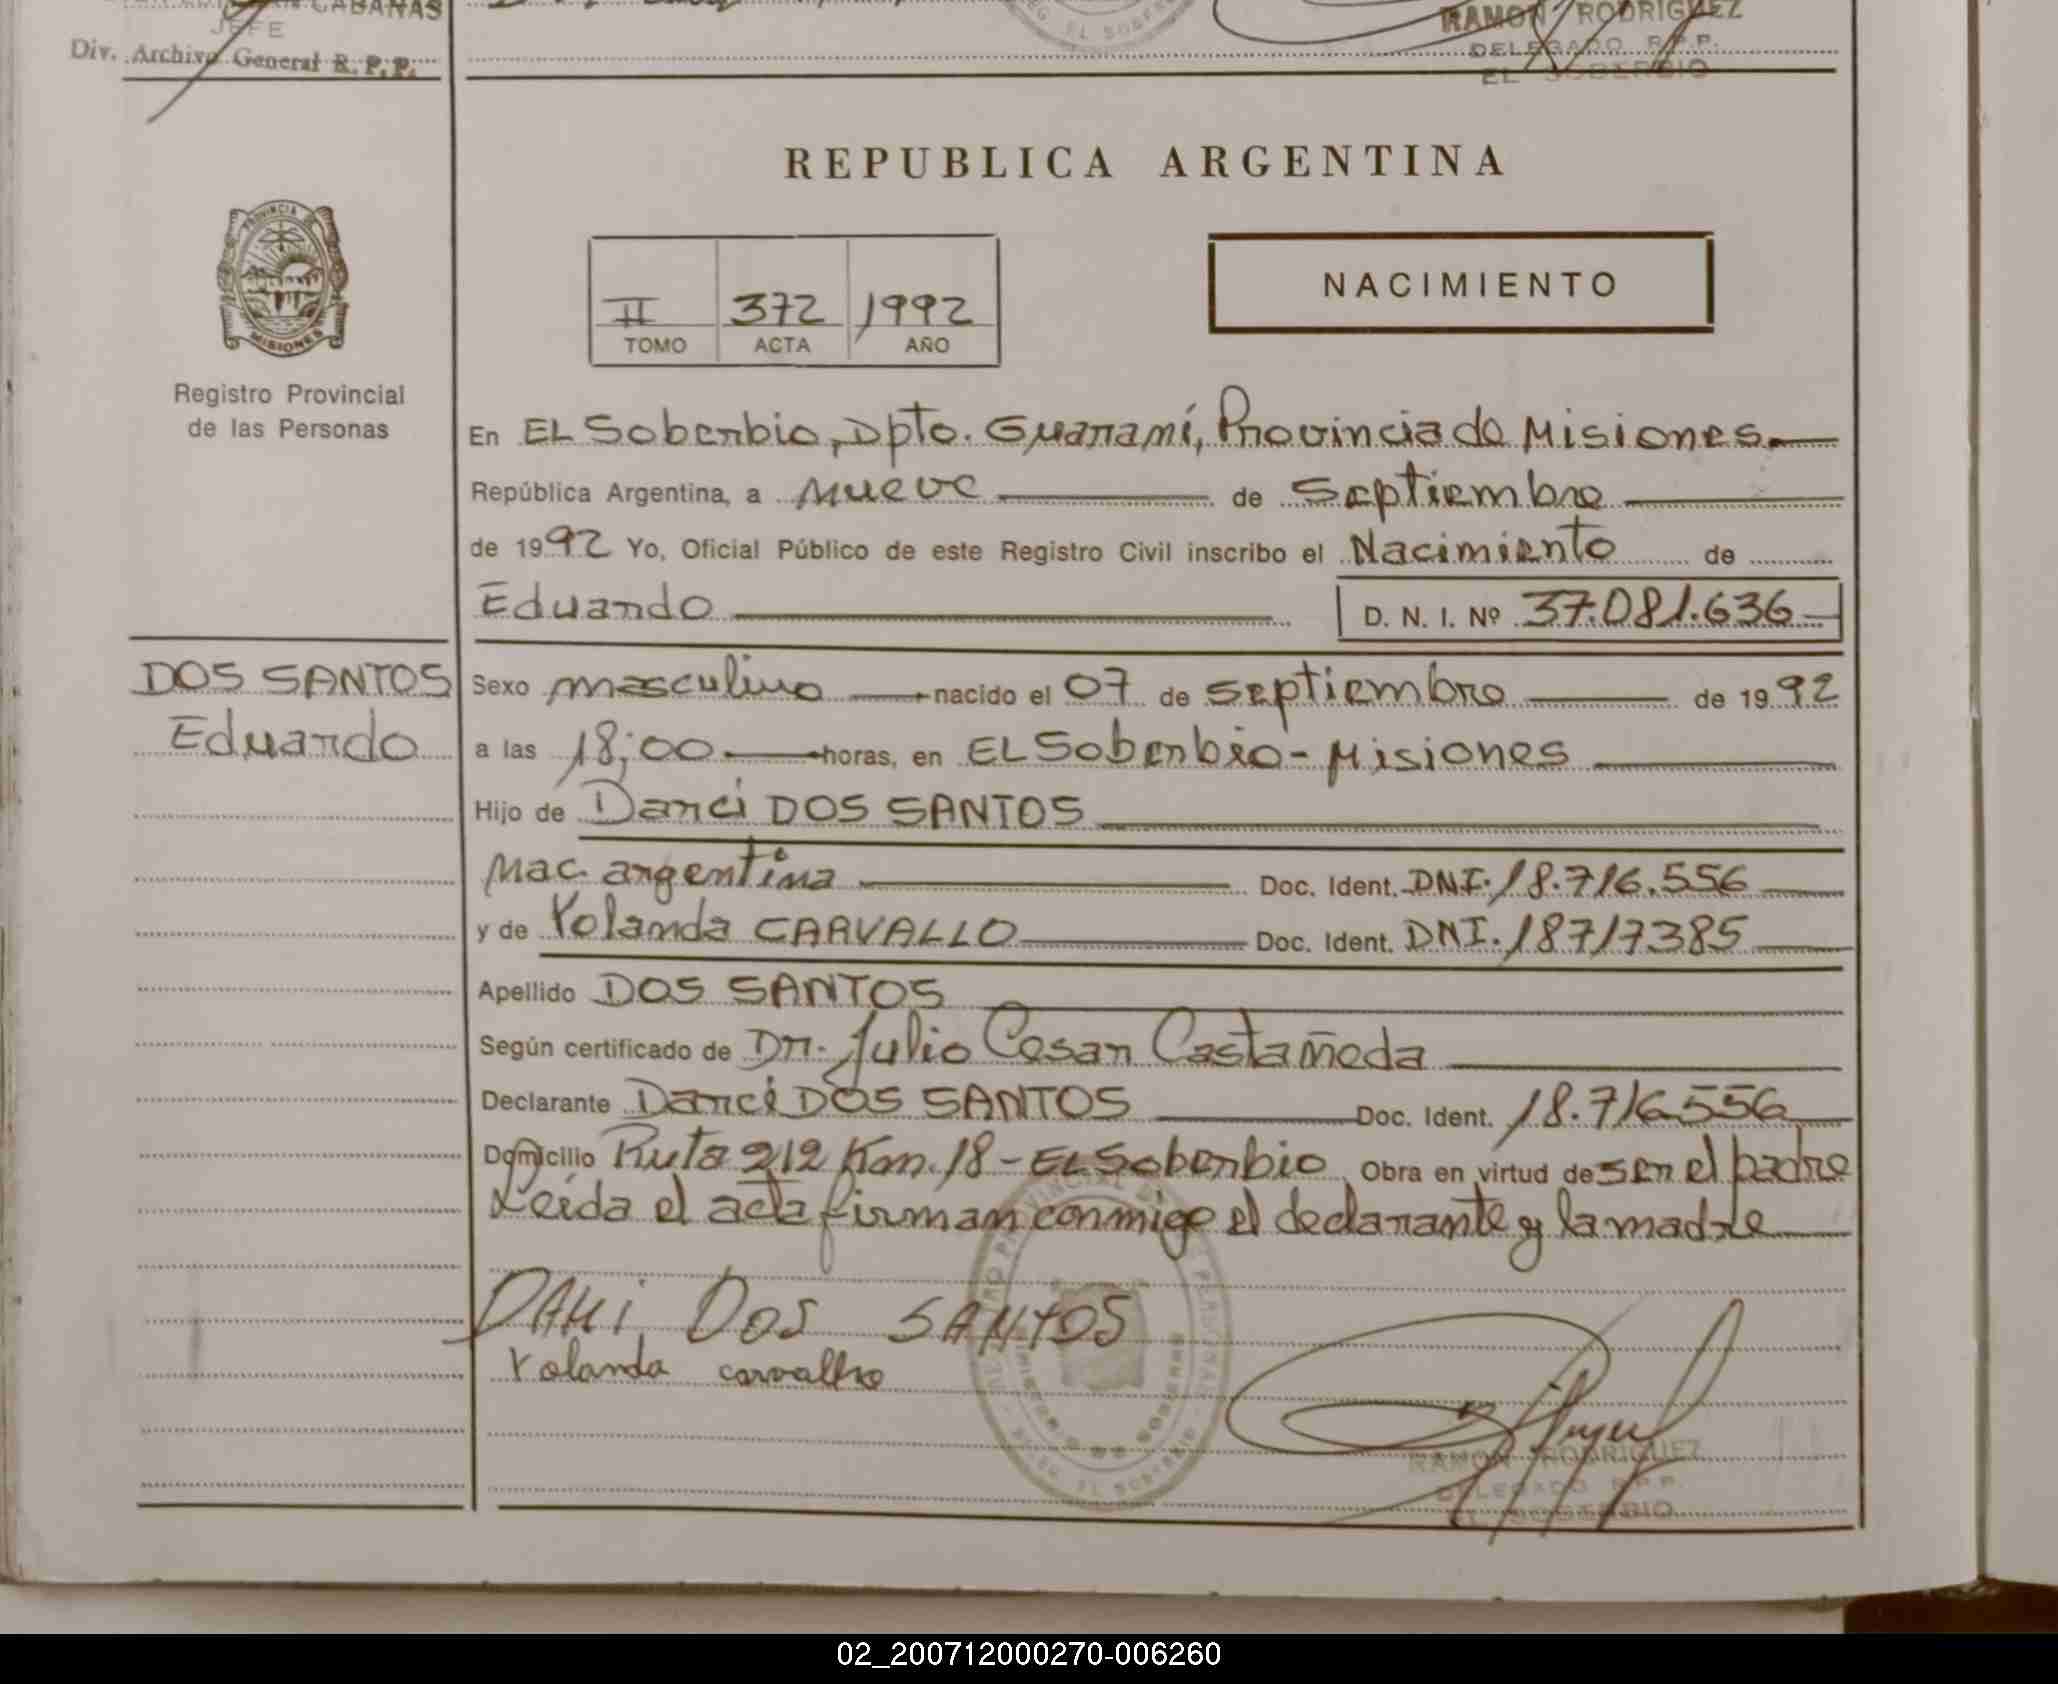 CABAÑAS
JEFE
Div. Archivo General R. P. P.
EL SOBERBIO
RAMON RODRIGUEZ
DELEGADO R.P.P.
EL SOBERBIO
REPUBLICA ARGENTINA
PROVINCIA DE
MISIONES
II 372 1992
TOMO ACTA AÑO
NACIMIENTO
Registro Provincial
de las Personas
En EL Soberbio, Dpto. Guaraní, Provincia de Misiones.
República Argentina, a nueve de Septiembre
de 1992 Yo, Oficial Público de este Registro Civil inscribo el Nacimiento de
Eduardo D. N. I. Nº 37.081.636
DOS SANTOS
Eduardo
Sexo masculino nacido el 07 de septiembre de 1992
a las 18;00 horas, en EL Soberbio - Misiones
Hijo de Darci DOS SANTOS
Nac. argentina Doc. Ident. DNI. 18.716.556
y de Yolanda CARVALLO Doc. Ident. DNI. 18717385
Apellido DOS SANTOS
Según certificado de Dr. Julio Cesar Castañeda
Declarante Darci DOS SANTOS Doc. Ident. 18.716556
Domicilio Ruta 212 Km. 18 - EL Soberbio Obra en virtud de ser el padre
Leída el acta firman conmigo el declarante y la madre
DAHi DOS SANTOS
Yolanda carvalho
RAMON RODRIGUEZ
DELEGADO R.P.P.
EL SOBERBIO
02_200712000270-006260